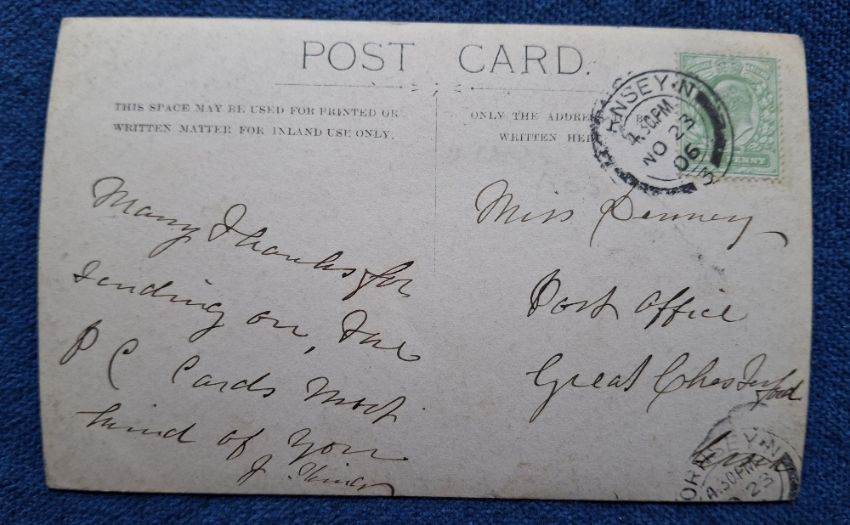 POST CARD.
THIS SPACE MAY BE USED FOR PRINTED OR
WRITTEN MATTER FOR INLAND USE ONLY.
ONLY THE ADDRESS BE
WRITTEN HERE
RNSEY·N
4.30PM
NO 23
06
PENNY
Many Thanks for
sending on, the
P C Cards most
kind of you
J.
Miss Penney
Post Office
Great Chesterford
HORNSEY·N
4.30PM
NO 23